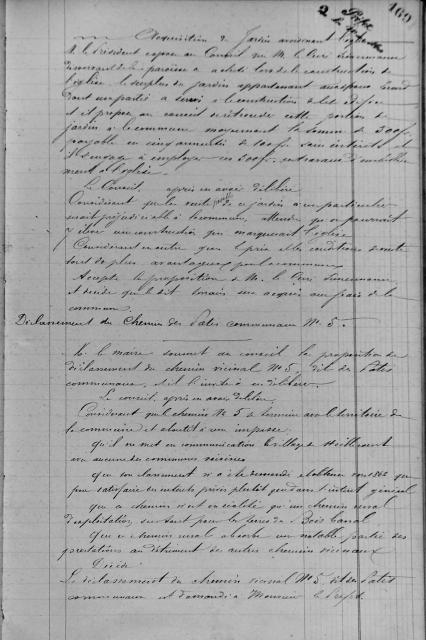 160
2
Acquisition de Jardin avoisinant l'église
M. le Président expose au Conseil que M. le Curé
de la paroisse a acheté lors de la construction de
l'église le surplus du jardin appartenant
dont une partie a servi à la construction de l'édifice
et il propose au conseil de cette portion de
jardin à la commune moyennant la somme de 500f
payable en cinq annuités de 100f sans intérêts et
s'engage à employer ces 500f en travaux d'
ment à l'église.
Le Conseil, après en avoir délibéré
Considérant que la vente de ce jardin à un particulier
serait préjudiciable à la commune, attendu qu'on pourrait
y élever une construction qui masquerait l'église
Considérant en outre que le prix et les conditions sont
tout de plus avantageux pour la commune
Accepte la proposition de M. le Curé
et décide que le dit terrain sera acquis aux frais de la
commune.
Déclassement du Chemin des Patis communaux N° 5.
M. le maire soumet au conseil la proposition de
déclassement du chemin vicinal N° 5, dit des Patis
communaux, et il l'invite à en délibérer.
Le conseil, après en avoir délibéré,
Considérant que le chemin N° 5 se termine sur le territoire de
la commune et aboutit à une impasse
qu'il ne met en communication le village
avec aucune des communes voisines
Que son classement n'a été demandé et obtenu en 1862 que
pour satisfaire des intérêts privés plutôt que dans l'intérêt général
que ce chemin n'est en réalité qu'un chemin rural
d'exploitation, surtout pour la ferme du Bois
Que ce chemin rural absorbe une notable partie des
prestations au détriment des autres chemins vicinaux
Décide:
Le déclassement du chemin vicinal N° 5, dit des Patis
communaux et demande à Monsieur le Préfet